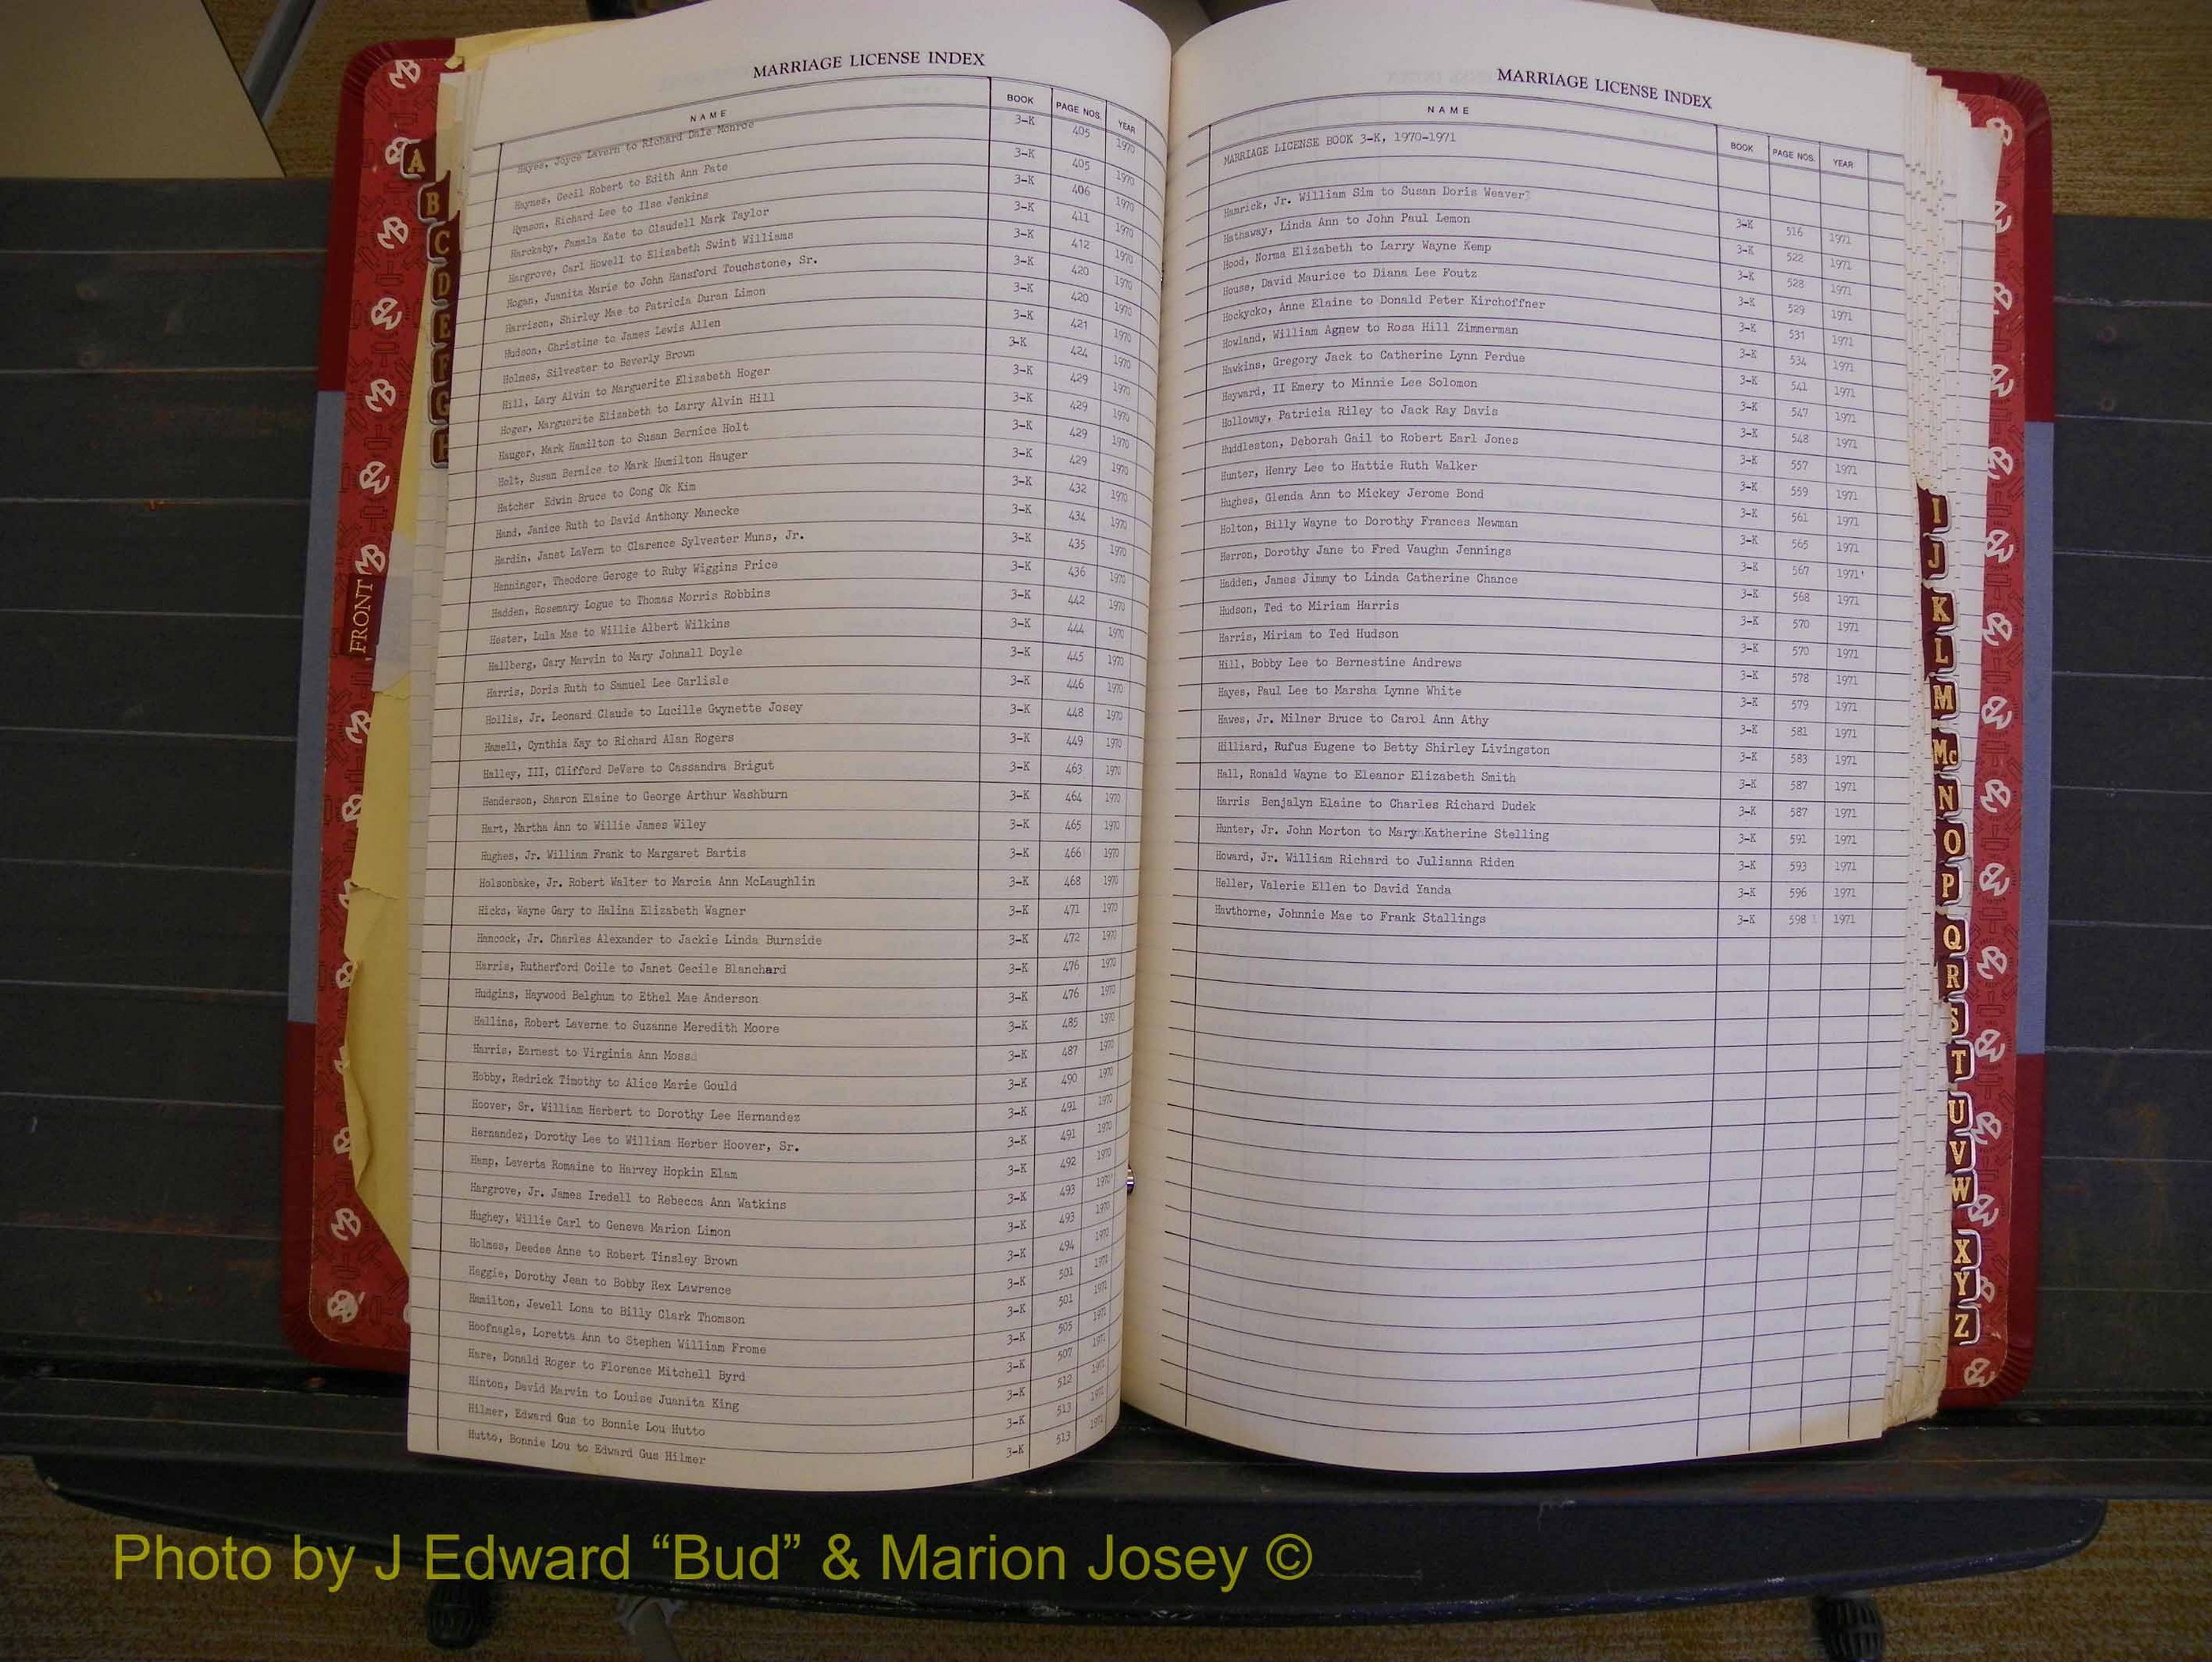 MARRIAGE LICENSE INDEX
NAME BOOK PAGE NOS. YEAR
Hayes, Joyce Lavern to Richard Dale Monroe 3-K 405 1970
Haynes, Cecil Robert to Edith Ann Pate 3-K 405 1970
Hynson, Richard Lee to Ilse Jenkins 3-K 406 1970
Harckaby, Pamala Kate to Claudell Mark Taylor 3-K 411 1970
Hargrove, Carl Howell to Elizabeth Swint Williams 3-K 412 1970
Hogan, Juanita Marie to John Hansford Touchstone, Sr. 3-K 420 1970
Harrison, Shirley Mae to Patricia Duran Limon 3-K 420 1970
Hudson, Christine to James Lewis Allen 3-K 421 1970
Holmes, Silvester to Beverly Brown 3-K 424 1970
Hill, Lary Alvin to Marguerite Elizabeth Hoger 3-K 429 1970
Hoger, Marguerite Elizabeth to Larry Alvin Hill 3-K 429 1970
Hauger, Mark Hamilton to Susan Bernice Holt 3-K 429 1970
Holt, Susan Bernice to Mark Hamilton Hauger 3-K 429 1970
Hatcher Edwin Bruce to Cong Ok Kim 3-K 432 1970
Hand, Janice Ruth to David Anthony Manecke 3-K 434 1970
Hardin, Janet LaVern to Clarence Sylvester Muns, Jr. 3-K 435 1970
Henninger, Theodore Geroge to Ruby Wiggins Price 3-K 436 1970
Hadden, Rosemary Logue to Thomas Morris Robbins 3-K 442 1970
Hester, Lula Mae to Willie Albert Wilkins 3-K 444 1970
Hallberg, Gary Marvin to Mary Johnall Doyle 3-K 445 1970
Harris, Doris Ruth to Samuel Lee Carlisle 3-K 446 1970
Hollis, Jr. Leonard Claude to Lucille Gwynette Josey 3-K 448 1970
Hamell, Cynthia Kay to Richard Alan Rogers 3-K 449 1970
Halley, III, Clifford DeVere to Cassandra Brigut 3-K 463 1970
Henderson, Sharon Elaine to George Arthur Washburn 3-K 464 1970
Hart, Martha Ann to Willie James Wiley 3-K 465 1970
Hughes, Jr. William Frank to Margaret Bartis 3-K 466 1970
Holsonbake, Jr. Robert Walter to Marcia Ann McLaughlin 3-K 468 1970
Hicks, Wayne Gary to Halina Elizabeth Wagner 3-K 471 1970
Hancock, Jr. Charles Alexander to Jackie Linda Burnside 3-K 472 1970
Harris, Rutherford Coile to Janet Cecile Blanchard 3-K 476 1970
Hudgins, Haywood Belghum to Ethel Mae Anderson 3-K 476 1970
Hallins, Robert Laverne to Suzanne Meredith Moore 3-K 485 1970
Harris, Earnest to Virginia Ann Moss 3-K 487 1970
Hobby, Redrick Timothy to Alice Marie Gould 3-K 490 1970
Hoover, Sr. William Herbert to Dorothy Lee Hernandez 3-K 491 1970
Hernandez, Dorothy Lee to William Herber Hoover, Sr. 3-K 491 1970
Hamp, Laverta Romaine to Harvey Hopkin Elam 3-K 492 1970
Hargrove, Jr. James Iredell to Rebecca Ann Watkins 3-K 493 1970
Hughey, Willie Carl to Geneva Marion Limon 3-K 493 1970
Holmes, Deedee Anne to Robert Tinsley Brown 3-K 494 1970
Haggie, Dorothy Jean to Bobby Rex Lawrence 3-K 501 1971
Hamilton, Jewell Lona to Billy Clark Thomson 3-K 501 1971
Hoofnagle, Loretta Ann to Stephen William Frome 3-K 505 1971
Hare, Donald Roger to Florence Mitchell Byrd 3-K 507 1971
Hinton, David Marvin to Louise Juanita King 3-K 512 1971
Hilmer, Edward Gus to Bonnie Lou Hutto 3-K 513 1971
Hutto, Bonnie Lou to Edward Gus Hilmer 3-K 513 1971
MARRIAGE LICENSE INDEX
NAME BOOK PAGE NOS. YEAR
MARRIAGE LICENSE BOOK 3-K, 1970-1971
Hamrick, Jr. William Sim to Susan Doris Weaver 3-K 516 1971
Hathaway, Linda Ann to John Paul Lemon 3-K 522 1971
Hood, Norma Elizabeth to Larry Wayne Kemp 3-K 528 1971
House, David Maurice to Diana Lee Foutz 3-K 529 1971
Hockycko, Anne Elaine to Donald Peter Kirchoffner 3-K 531 1971
Howland, William Agnew to Rosa Hill Zimmerman 3-K 534 1971
Hawkins, Gregory Jack to Catherine Lynn Perdue 3-K 541 1971
Heyward, II Emery to Minnie Lee Solomon 3-K 547 1971
Holloway, Patricia Riley to Jack Ray Davis 3-K 548 1971
Huddleston, Deborah Gail to Robert Earl Jones 3-K 557 1971
Hunter, Henry Lee to Hattie Ruth Walker 3-K 559 1971
Hughes, Glenda Ann to Mickey Jerome Bond 3-K 561 1971
Holton, Billy Wayne to Dorothy Frances Newman 3-K 565 1971
Herron, Dorothy Jane to Fred Vaughn Jennings 3-K 567 1971
Hadden, James Jimmy to Linda Catherine Chance 3-K 568 1971
Hudson, Ted to Miriam Harris 3-K 570 1971
Harris, Miriam to Ted Hudson 3-K 570 1971
Hill, Bobby Lee to Bernestine Andrews 3-K 578 1971
Hayes, Paul Lee to Marsha Lynne White 3-K 579 1971
Hawes, Jr. Milner Bruce to Carol Ann Athy 3-K 581 1971
Hilliard, Rufus Eugene to Betty Shirley Livingston 3-K 583 1971
Hall, Ronald Wayne to Eleanor Elizabeth Smith 3-K 587 1971
Harris Benjalyn Elaine to Charles Richard Dudek 3-K 587 1971
Hunter, Jr. John Morton to Mary Katherine Stelling 3-K 591 1971
Howard, Jr. William Richard to Julianna Riden 3-K 593 1971
Heller, Valerie Ellen to David Yanda 3-K 596 1971
Hawthorne, Johnnie Mae to Frank Stallings 3-K 598 1971
A
B
C
D
E
F
G
H
FRONT
I
J
K
L
M
Mc
N
O
P
Q
R
S
T
U
V
W
X
Y
Z
Photo by J Edward “Bud” & Marion Josey ©